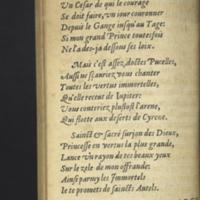 Vn Cesar de qui le courage
Se doit faire, vn iour couronner
Depuis le Gange iusqu'au Tage:
Si mon grand Prince toutesfois
Ne l'a des-ja dessous ses loix.
Mais c'est assez, doctes Pucelles,
Aussi ne sçauriez vous chanter
Toutes les vertus immortelles,
Qu'elle receut de Iupiter:
Vous conteriez plustost l'arene,
Qui flotte aux deserts de Cyrene.
Sainct & sacré surjon des Dieux,
Princesse en vertus la plus grande,
Lance vn rayon de tes beaux yeux
Sur le zele de mon offrande:
Ainsi parmy les Immortels
Ie te promets de saincts Autels.